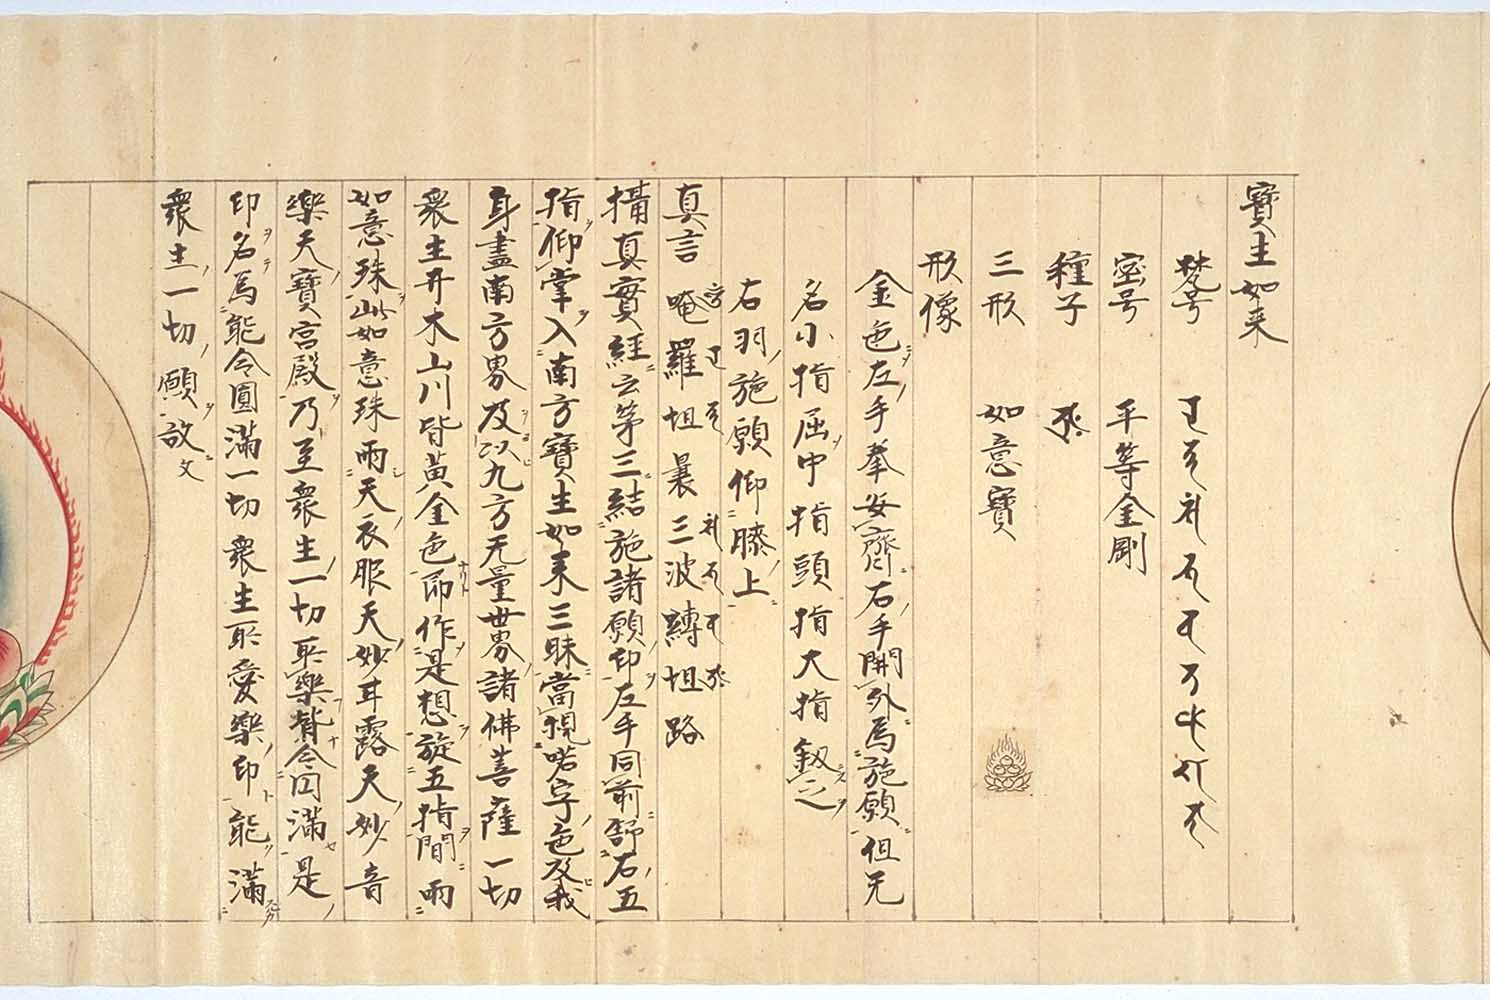 寶生如来
梵号
密号　平等金剛
種子
三形　如意寶
形像
金色左手拳安齊右手開外為施願但无
名小指屈中指頭指大指釼之
右羽施願仰膝上
真言　唵羅怛曩三波縛怛路
攝真實經云第三結施諸願印左手同前舒右五
指仰掌入南方寶生如来三昧當觀喏字色及我
身盡南方界及以九方无量世界諸佛菩薩一切
衆生草木山川皆黄金色即作是想旋五指間雨
如意珠此如意珠雨天衣服天妙甘露天妙音
樂天寶宮殿乃至衆生一切所樂皆令圓滿是
印名為能令圓滿一切衆生所愛樂印能滿
衆生一切願故文